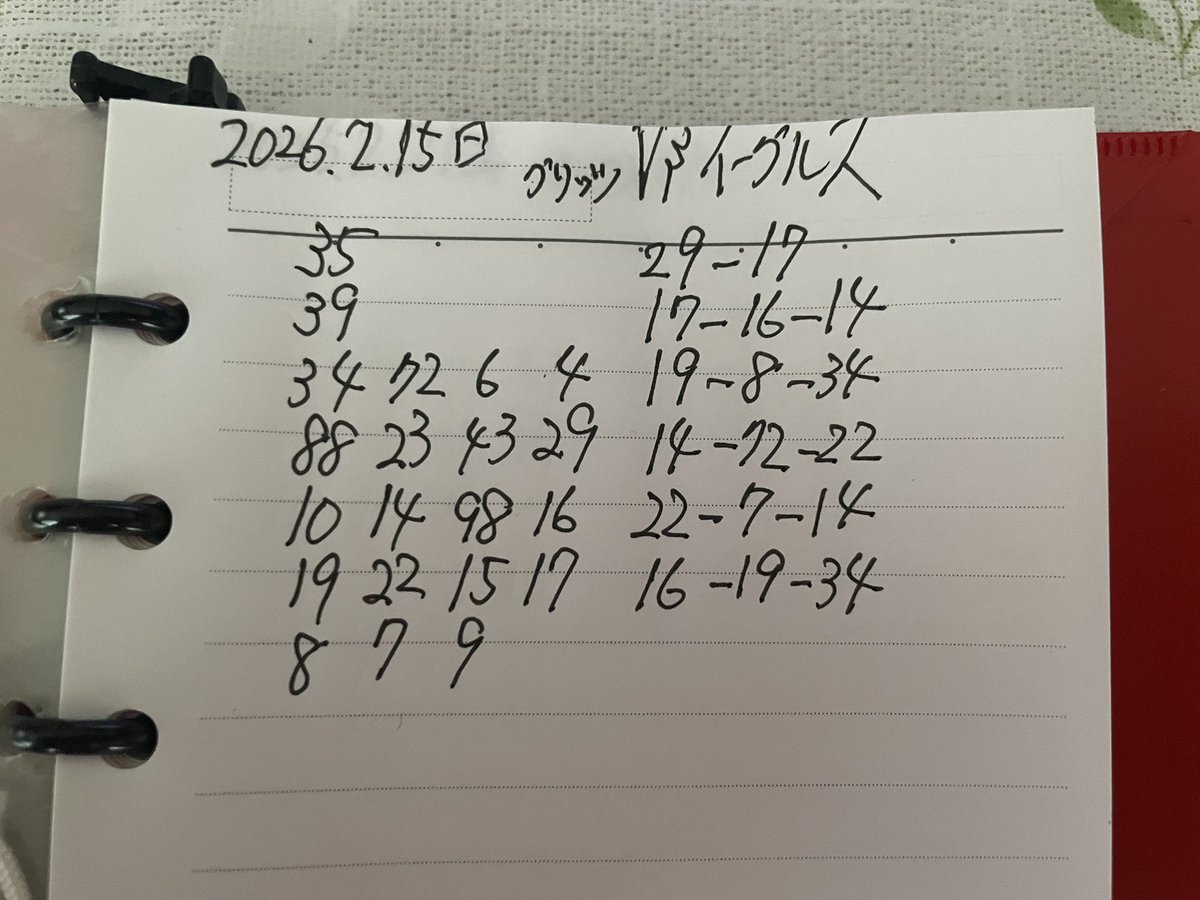 2026.2.15日 グリッツ VS イーグルス
35 29-17
39 17-16-14
34 72 6 4 19-8-34
88 23 43 29 14-72-22
10 14 98 16 22-7-14
19 22 15 17 16-19-34
8 7 9